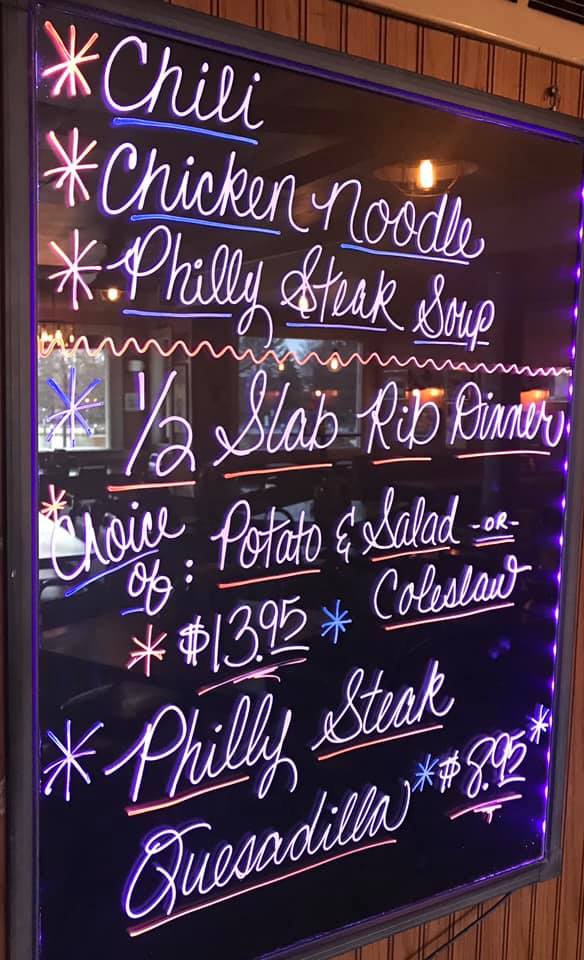 * Chili
* Chicken Noodle
* Philly Steak Soup
* 1/2 Slab Rib Dinner
* Choice of: Potato & Salad -OR- Coleslaw
* $13.95 *
* Philly Steak
Quesadilla * $8.95 *